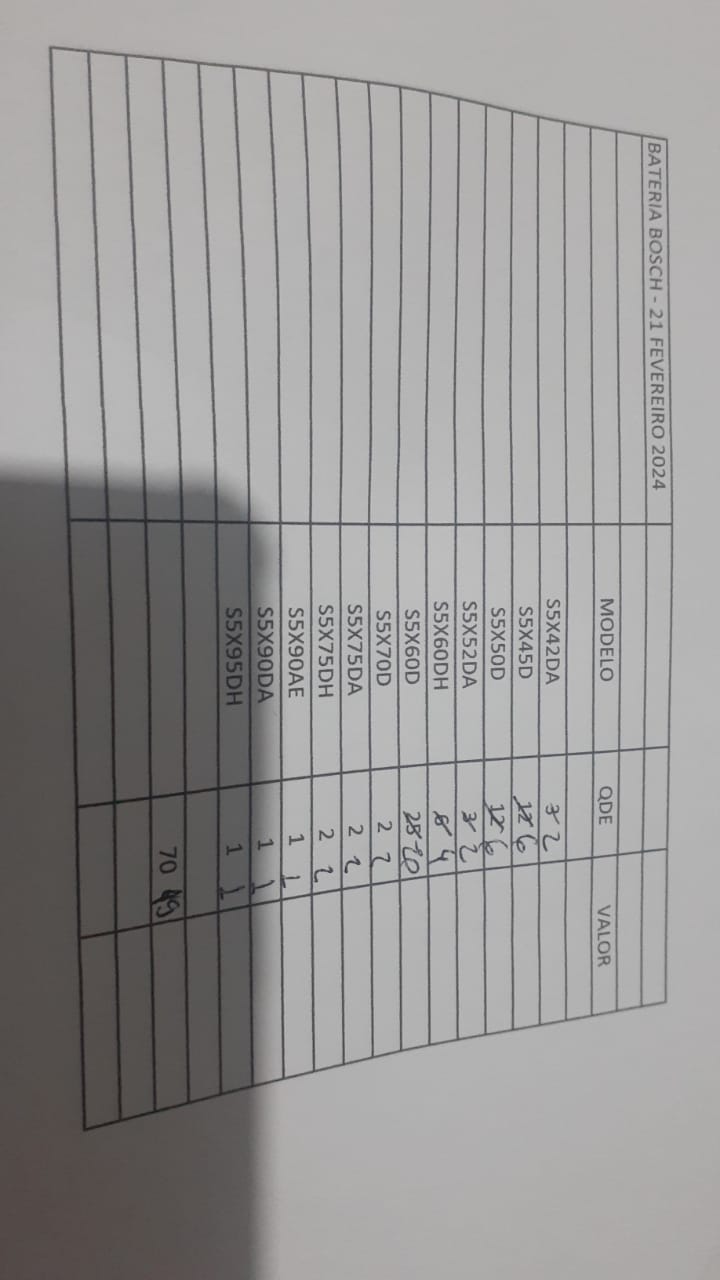 BATERIA BOSCH - 21 FEVEREIRO 2024
MODELO QDE VALOR
S5X42DA 3 2
S5X45D 12 6
S5X50D 12 6
S5X52DA 3 2
S5X60DH 5 4
S5X60D 25 20
S5X70D 2 2
S5X75DA 2 2
S5X75DH 2 2
S5X90AE 1 1
S5X90DA 1 1
S5X95DH 1 1
70 49